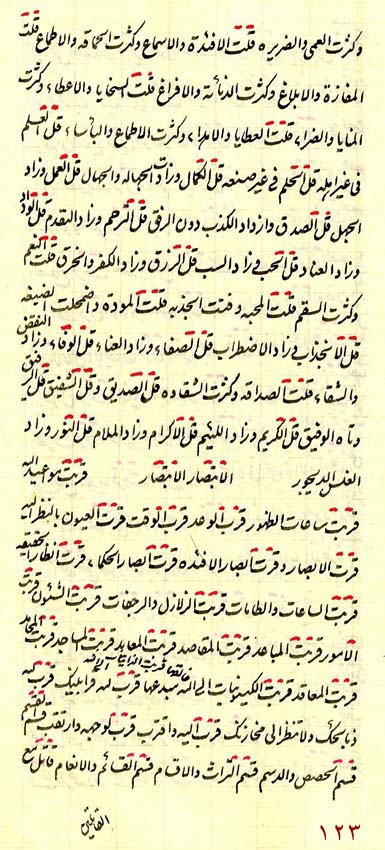 وكثرت العمى والضريره قلت الافئدة والاسماع وكثرت الحماقه والاطماع قلت
المفازة والابلاغ وكثرت الدنائة والافراغ قلت السخايا والاعطاء وكثرت
المنايا والضراء قلت العطايا والاهداء وكثرت الاطماع والباساء قل العلم
فى غير اهله قل الحلم فى غير صنعه قل الكمال وزادت الجهاله والجهال قل العمل وزاد
الجهل قل الصدق وازداد الكذب دون الرفق قل الترحم وزاد التقدم قل الوداد
وزاد العناد قل الحب فزاد السب قل الرزق وزاد الكفر والخرق قلت النعم
وكثرت السقم قلت المحبه وفنت الجذبه قلت الموده واضمحلت الصنيعه
قل الانجذاب فزاد الاضطراب قل الصفاء وزاد العناء قل الوفاء وزاد النقض
والشقاء قلت الصداقه وكثرت الشقاده قل الصديق وقل الشفيق قل الرفيق
وتاه الوفيق قل الكريم وزاد اللئيم قل الاكرام وزاد الملام قل النور وزاد
الغسق الديجور الانتصار الانتصار قربت مواعيد الله
قربت ساعات الظهور قرب الوعد قرب الوقت قربت العيون بالنظر اليه
قربت الابصار وقربت ابصار الافئده قربت ابصار الحكماء قربت انظار الحقيقه
قربت الساعات والطامات قربت الزلازل والرجفات قربت الشئون قربت
الامور قربت المباعد قربت المقاصد قربت المعابد قربت المساجد قربت المحامد
قربت المعاقد قربت الكينونيات الى الله سبدعها قرب لله قرابينك قرب لله
ذبائحك ولا تنظر الى مخازنك قرب اليه واقرب قرب لوجهه وارتقب قسم التقسيم
قسم الحصص والدسم قسم التراث والاقسام قسم الغنائم والانعام قاتل مع
القاتلين
١٢٣